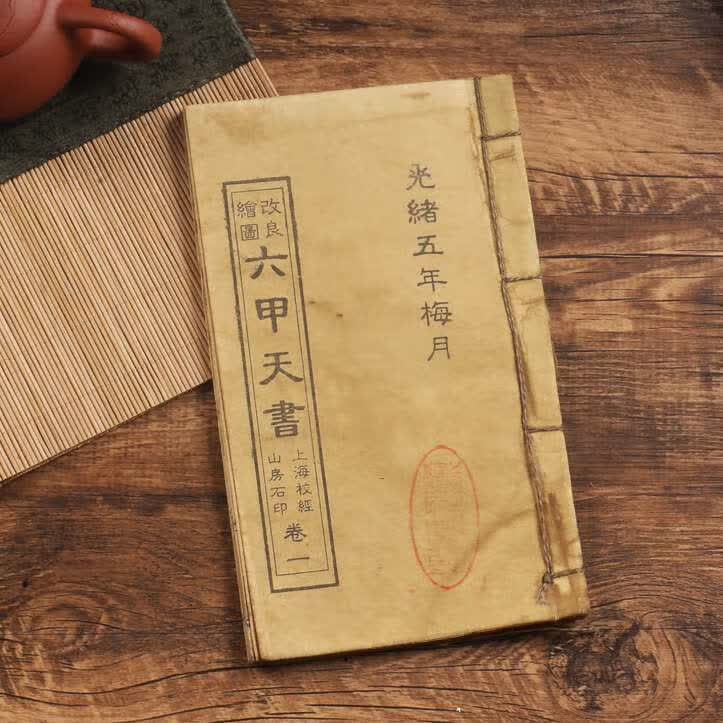 光緒五年梅月
改良
繪圖
六甲天書
上海校經
山房石印
卷一